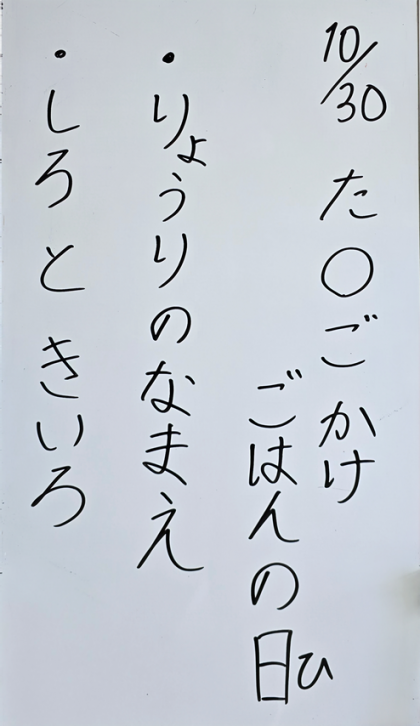 10/30 た〇ごかけ
ごはんの日ひ
・りょうりのなまえ
・しろと きいろ